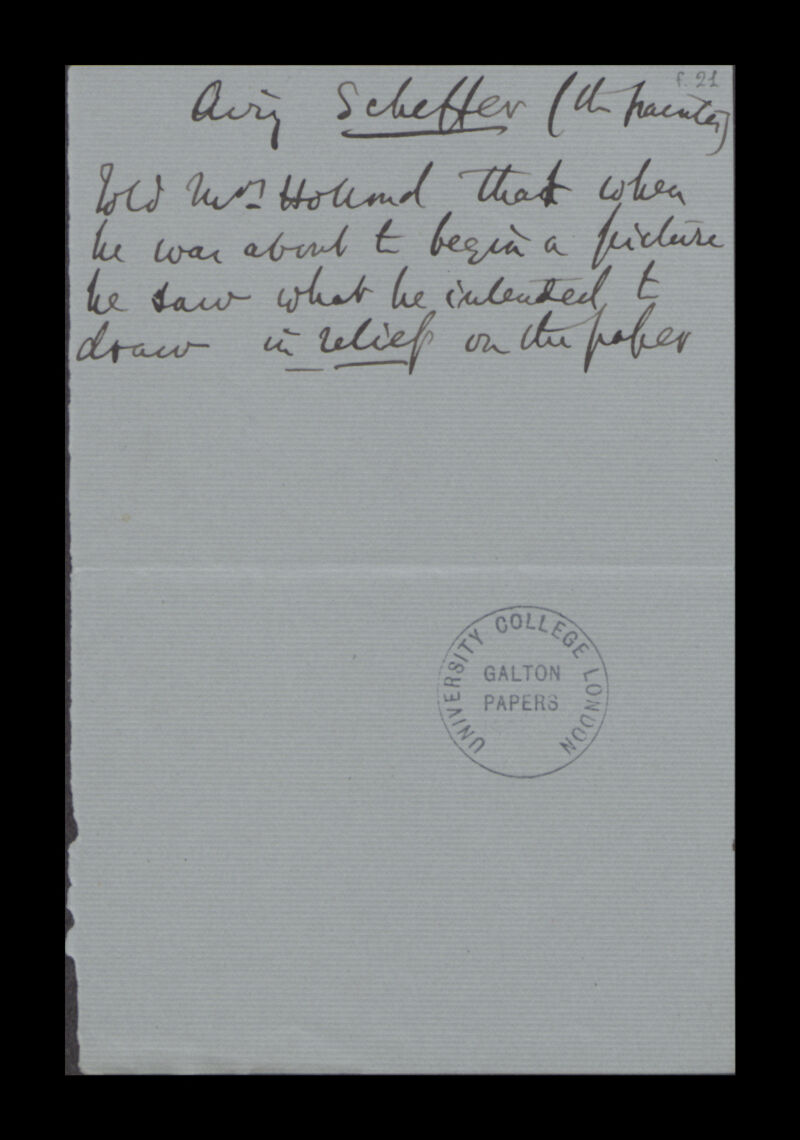 f. 21
Ary Scheffer (the painter)
Told Mrs Hollond that when
he was about to begin a picture
he saw what he intended to
draw in relief on the paper
UNIVERSITY COLLEGE LONDON
GALTON
PAPERS